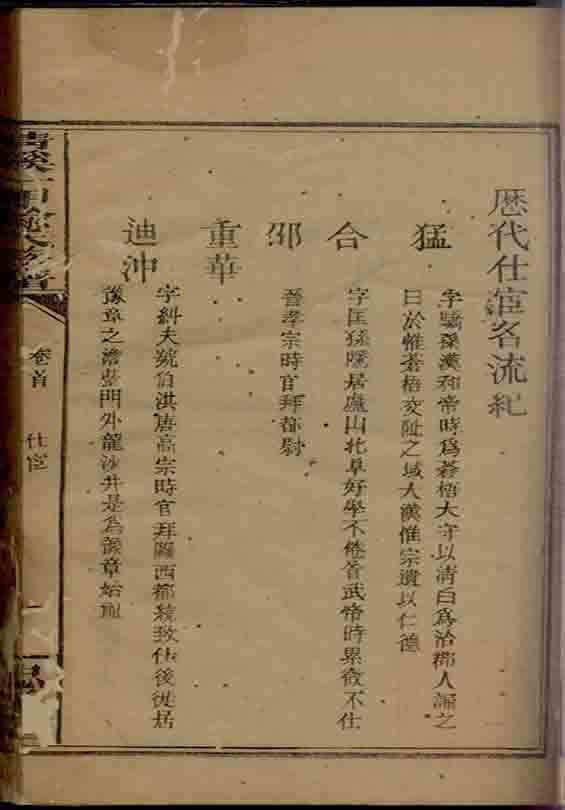 歷代仕宦名流紀
猛
字驕孫漢和帝時爲蒼梧大守以清白爲治郡人誦之
曰於惟蒼梧交阯之域人漢惟宗遺以仁德
合
字匡孫隱居廬山北阜好學不倦晉武帝時累徵不仕
邵
晉孝宗時官拜都尉
重華
迪沖
字糾夫號伯洪唐高宗時官拜關西都統致仕後徙居
豫章之澹臺門外龍沙井是爲豫章始祖
卷首
仕宦